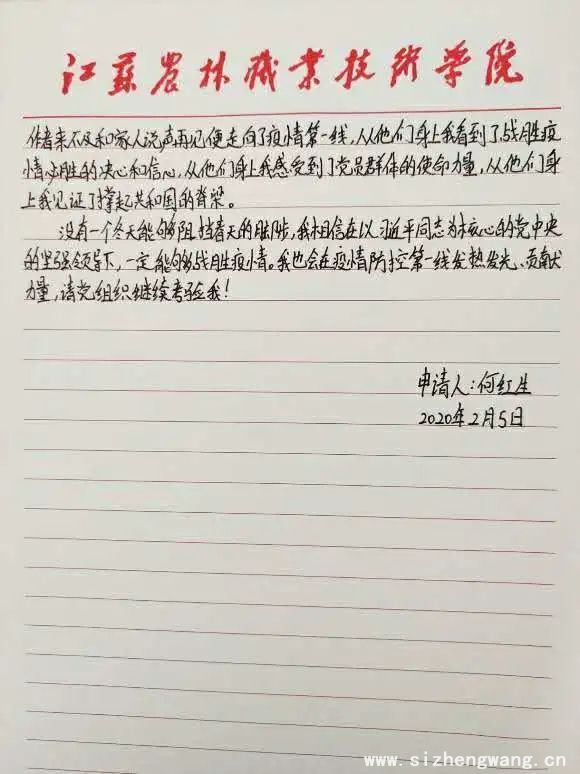 江苏农林职业技术学院
作者来不及和家人说声再见便走向了疫情第一线，从他们身上我看到了战胜疫
情必胜的决心和信心，从他们身上我感受到了党员群体的使命力量，从他们身
上我见证了撑起共和国的脊梁。
没有一个冬天能够阻挡春天的脚步，我相信在以习近平同志为核心的党中央
的坚强领导下，一定能够战胜疫情。我也会在疫情防控第一线发热发光、贡献
力量，请党组织继续考验我！
申请人：何红生
2020年2月5日
www.sizhengwang.cn